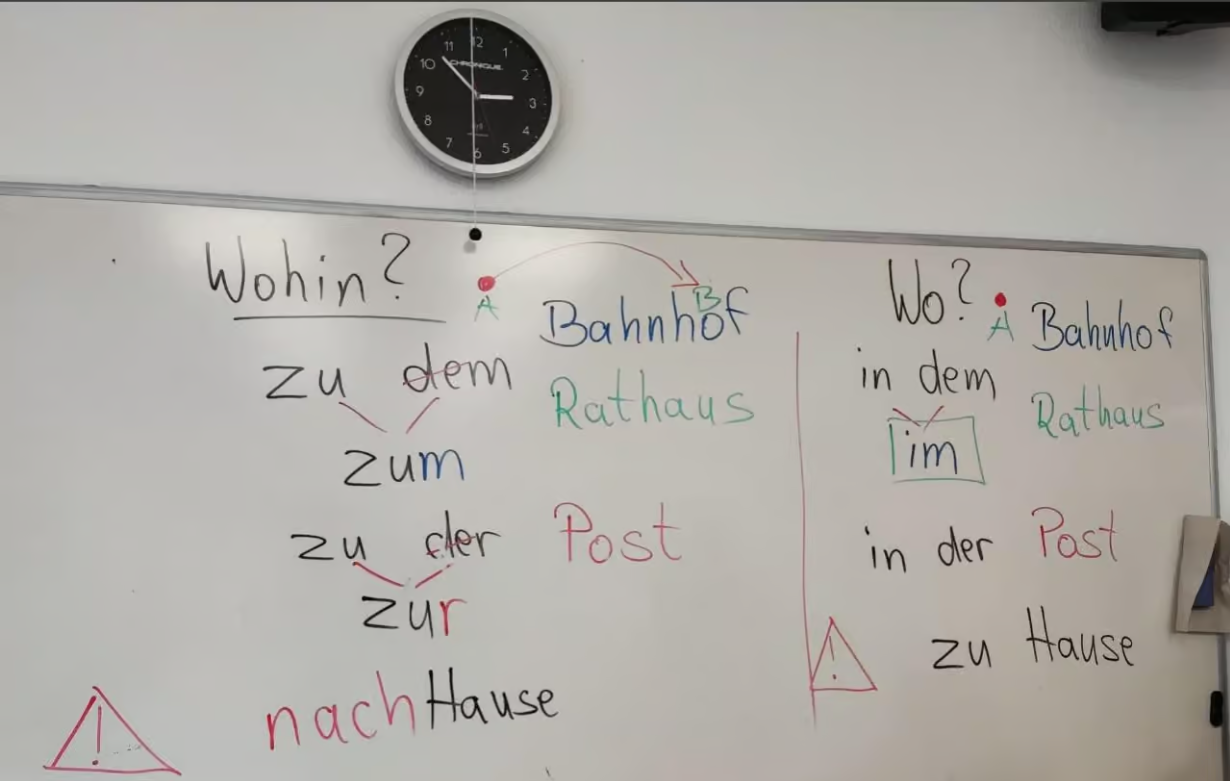 11 12 1
10 CHRONIQUE 2
9 3
8 4
7 6 5
Wohin?
A
B
Bahnhof
zu dem
Rathaus
zum
zu der Post
zur
! nach Hause
Wo?
A Bahnhof
in dem
Rathaus
im
in der Post
! zu Hause